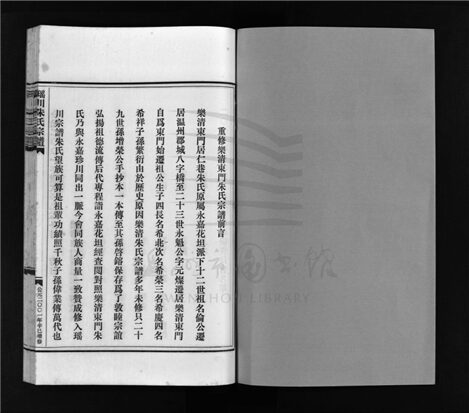 重修樂清東門朱氏宗譜前言
樂清東門居仁巷朱氏原屬永嘉花坦派下十二世祖名倫公遷
居温州郡城八字橋至二十三世永魁公字元燦遷居樂清東門
自爲東門始遷祖公生子四長名希北次名希榮三名希慶四名
希祥子孫繁衍由於歷史原因樂清朱氏宗譜多年未修只二十
九世孫增榮公手抄本一本傳至其孫啓鎔保存爲了敦睦宗誼
弘揚祖德流傳后代專程詣永嘉花坦經查閱對照樂清東門朱
氏乃與永嘉珍川同出一脈今會同族人商量一致赞成修入瑶
川宗譜朱氏望族可算是祖輩功績照千秋子孫偉業傳萬代也
瑶川朱氏宗譜
公元二〇〇一年辛巳增修
WENZHOU LIBRARY